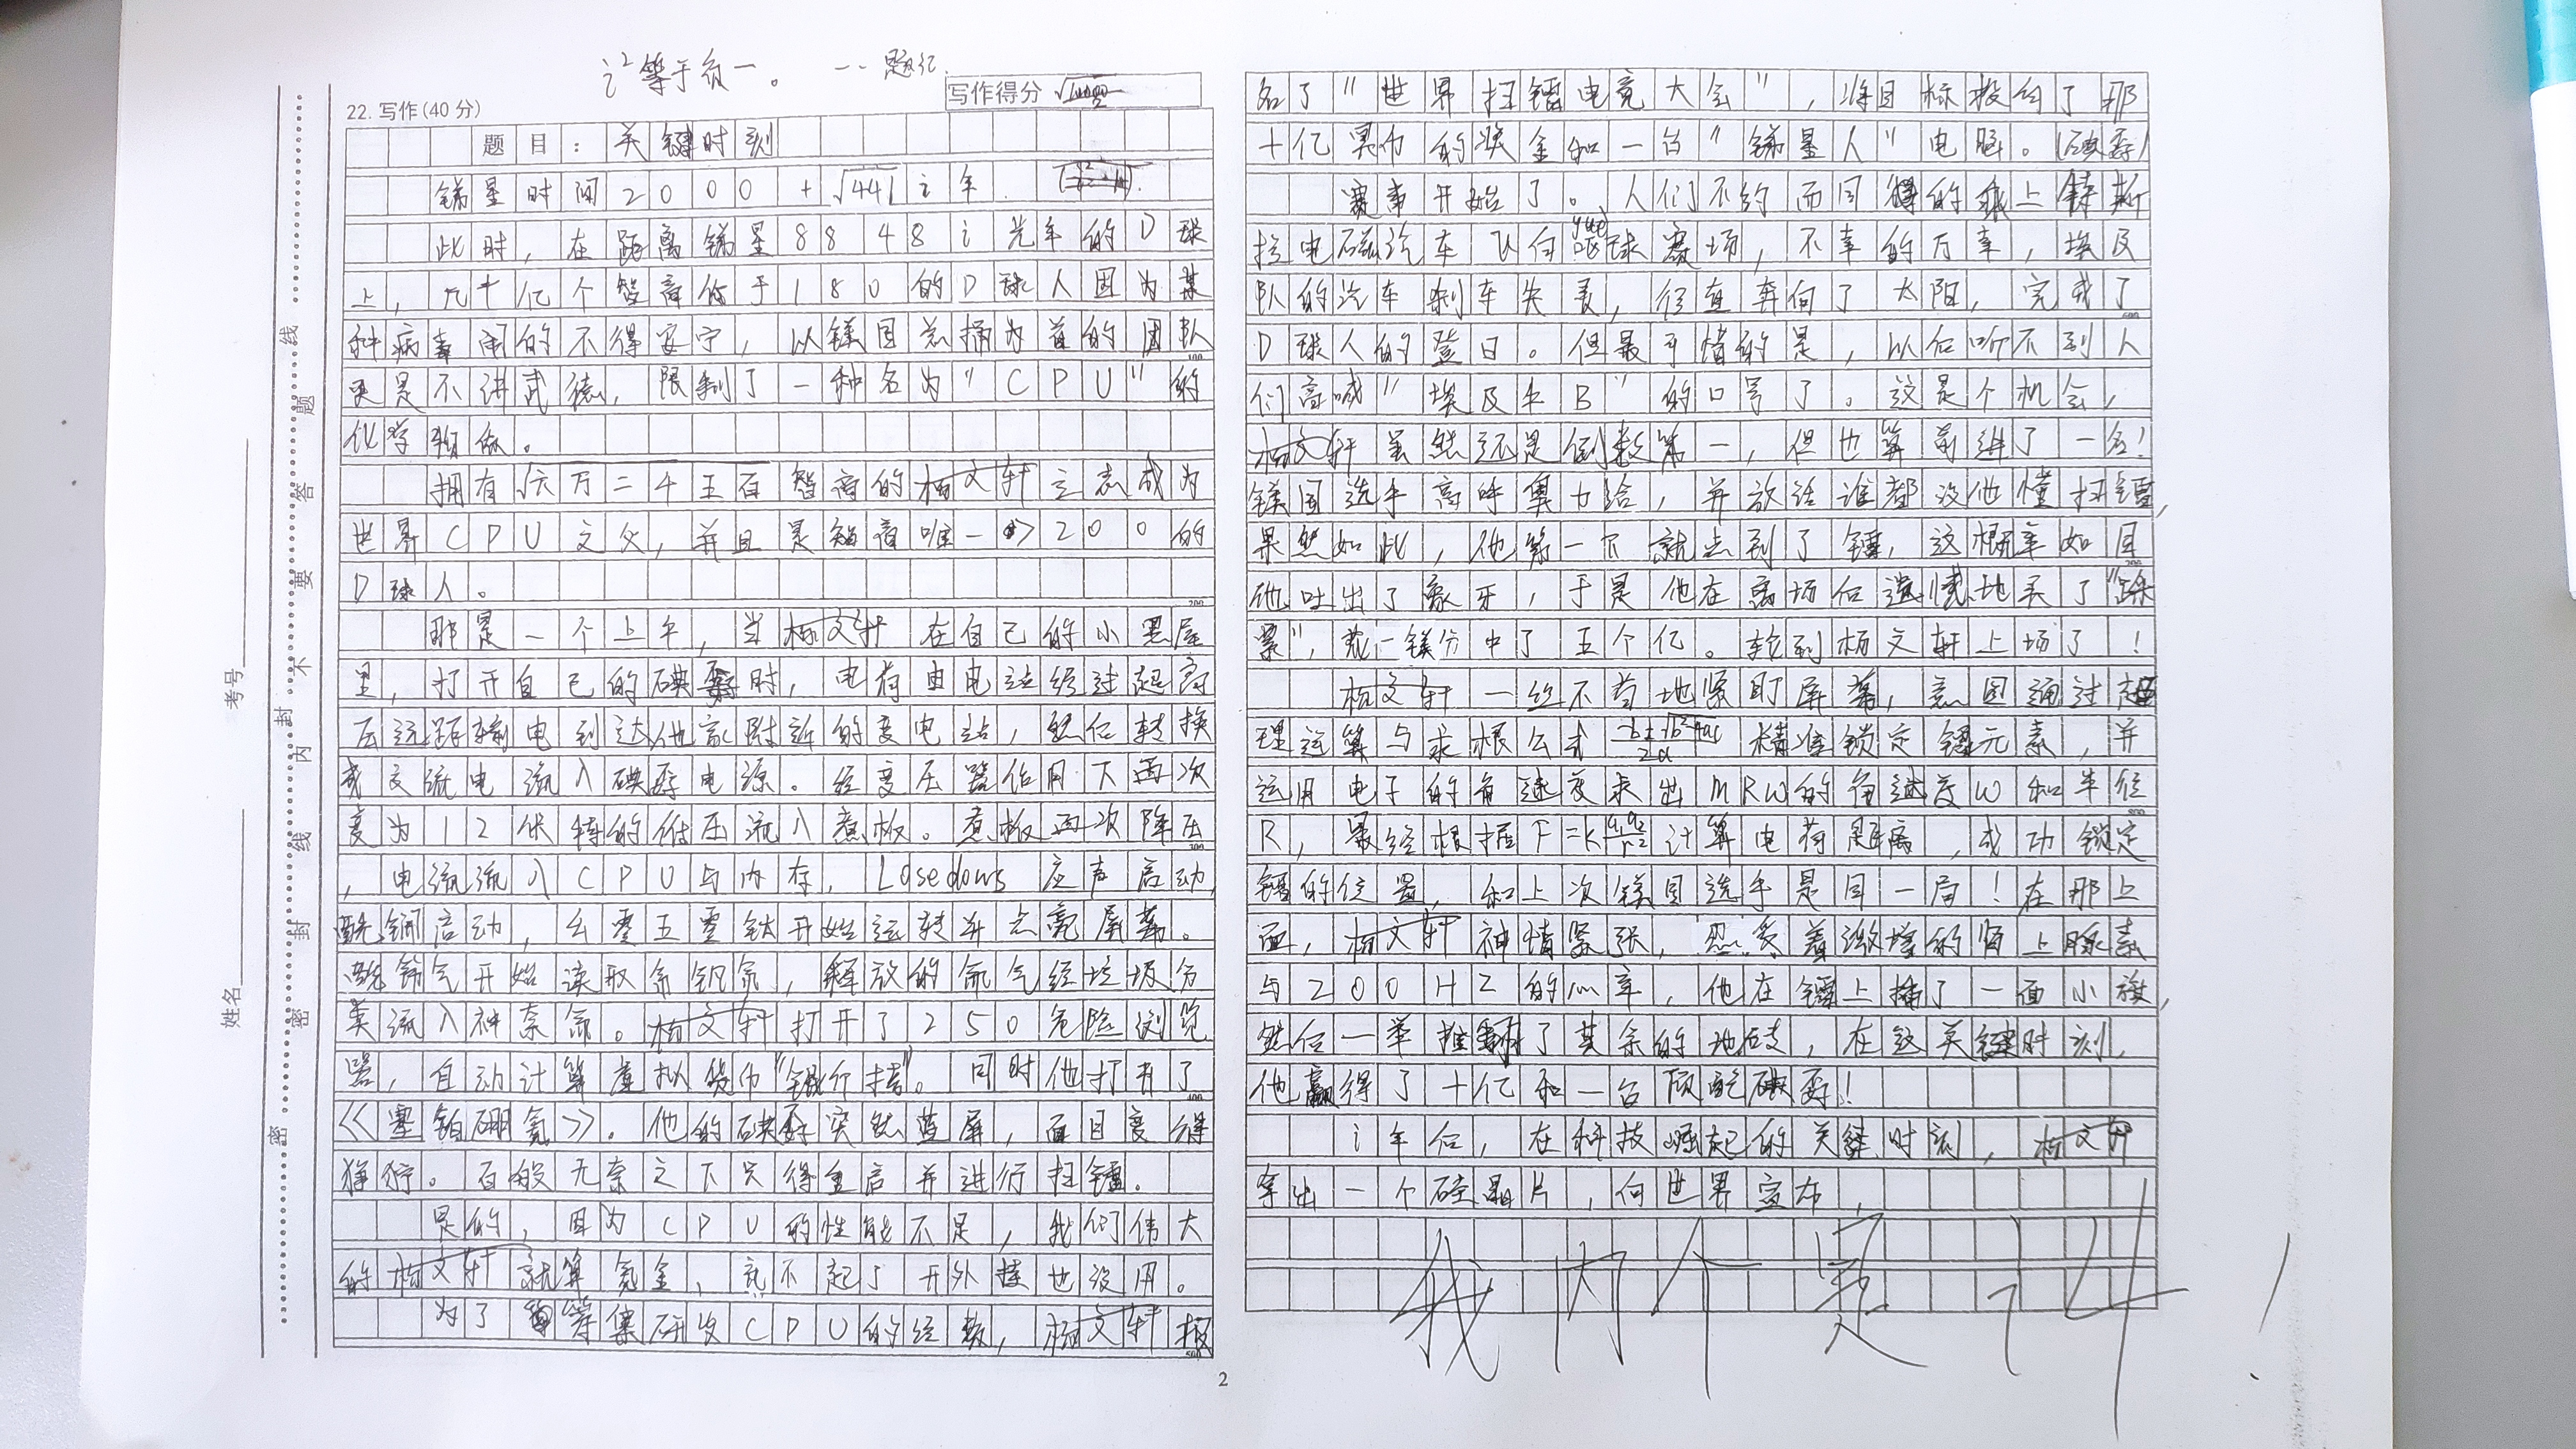 i²等于负一。 --题记.
22. 写作(40 分)
写作得分
题目：关键时刻
锑星时间2000+√441 i年.
此时，在距离锑星8848i光年的D球
上，几十亿个智商低于180的D球人因为某
种病毒闹的不得安宁，以镁国总捅为首的团队
更是不讲武德，限制了一种名为"CPU"的
化学
拥有√六万二千五百智商的杨文轩立志成为
世界CPU之父，并且是智商唯一>200的
D球人。
那是一个上午，当杨文轩在自己的小黑屋
里，打开自己的碘孬时，电荷由电达经过超高
压远距输电到达他家附近的变电站，然后转换
成交流电流入碘孬电源。经变压器作用下两次
变为12伏特的低压流入煮板。煮板两次降压
，电流流入CPU与内存，Losedows应声启动，
启动，幺零五零钛开始运转并点亮屏幕。
气开始读取，释放的氚气经垃圾分
类流入神奈氚。杨文轩打开了250危险浏览
器，自动计算虚拟货币"银行择"。同时他打开了
《塞铂硼氪》。他的碘孬突然蓝屏，面目变得
狰狞。百般无奈之下只得重启并进行扫镭。
是的，因为CPU的性能不足，我们伟大
的杨文轩就算氪金，就不起了开外挂也没用。
为了筹集研发CPU的经费，杨文轩报
2
名了"世界扫镭电竞大会"，将目标投向了那
十亿冥币的奖金和一台"锑星人"电脑。(碘孬)
赛事开始了。人们不约而同的乘上锊斯
拉电磁汽车飞向球赛场，不幸的万幸，埃及
yue
队的汽车刹车失灵，径直奔向了太阳，完成了
D球人的登日。但最可惜的是，以后听不到人
们高喊"埃及牛B"的口号了。这是个机会，
杨文轩虽然还是倒数第一，但也算前进了一名！
镁国选手高呼奥力给，并放话谁都没他懂扫镭，
果然如此，他第一下就点到了镭，这概率如同
他吐出了象牙，于是他在离场后遗憾地买了"踩
票"，花一镁分中了五个亿。轮到杨文轩上场了！
杨文轩一丝不苟地紧盯屏幕，意图通过超
理运算与求根公式 -b±√b²-4ac/2a 精准锁定镭元素，并
运用电子的角速度求出MRW的角速度W和半径
R，最终根据F=k q₁q₂/r² 计算电荷距离，成功锁定
镭的位置，和上次镁国选手是同一局！在那上
面，杨文轩神情紧张，忍受着激增的肾上腺素
与200HZ的心率，他在镭上插了一面小旗，
然后一举推翻了其余的地砖，在这关键时刻，
他赢得了十亿和一台顶配碘孬！
i年后，在科技崛起的关键时刻，杨文轩
拿出一个硅晶片，向世界宣布，
我内个是i4！
姓名 考号
密 封 线 内 不 要 答 题